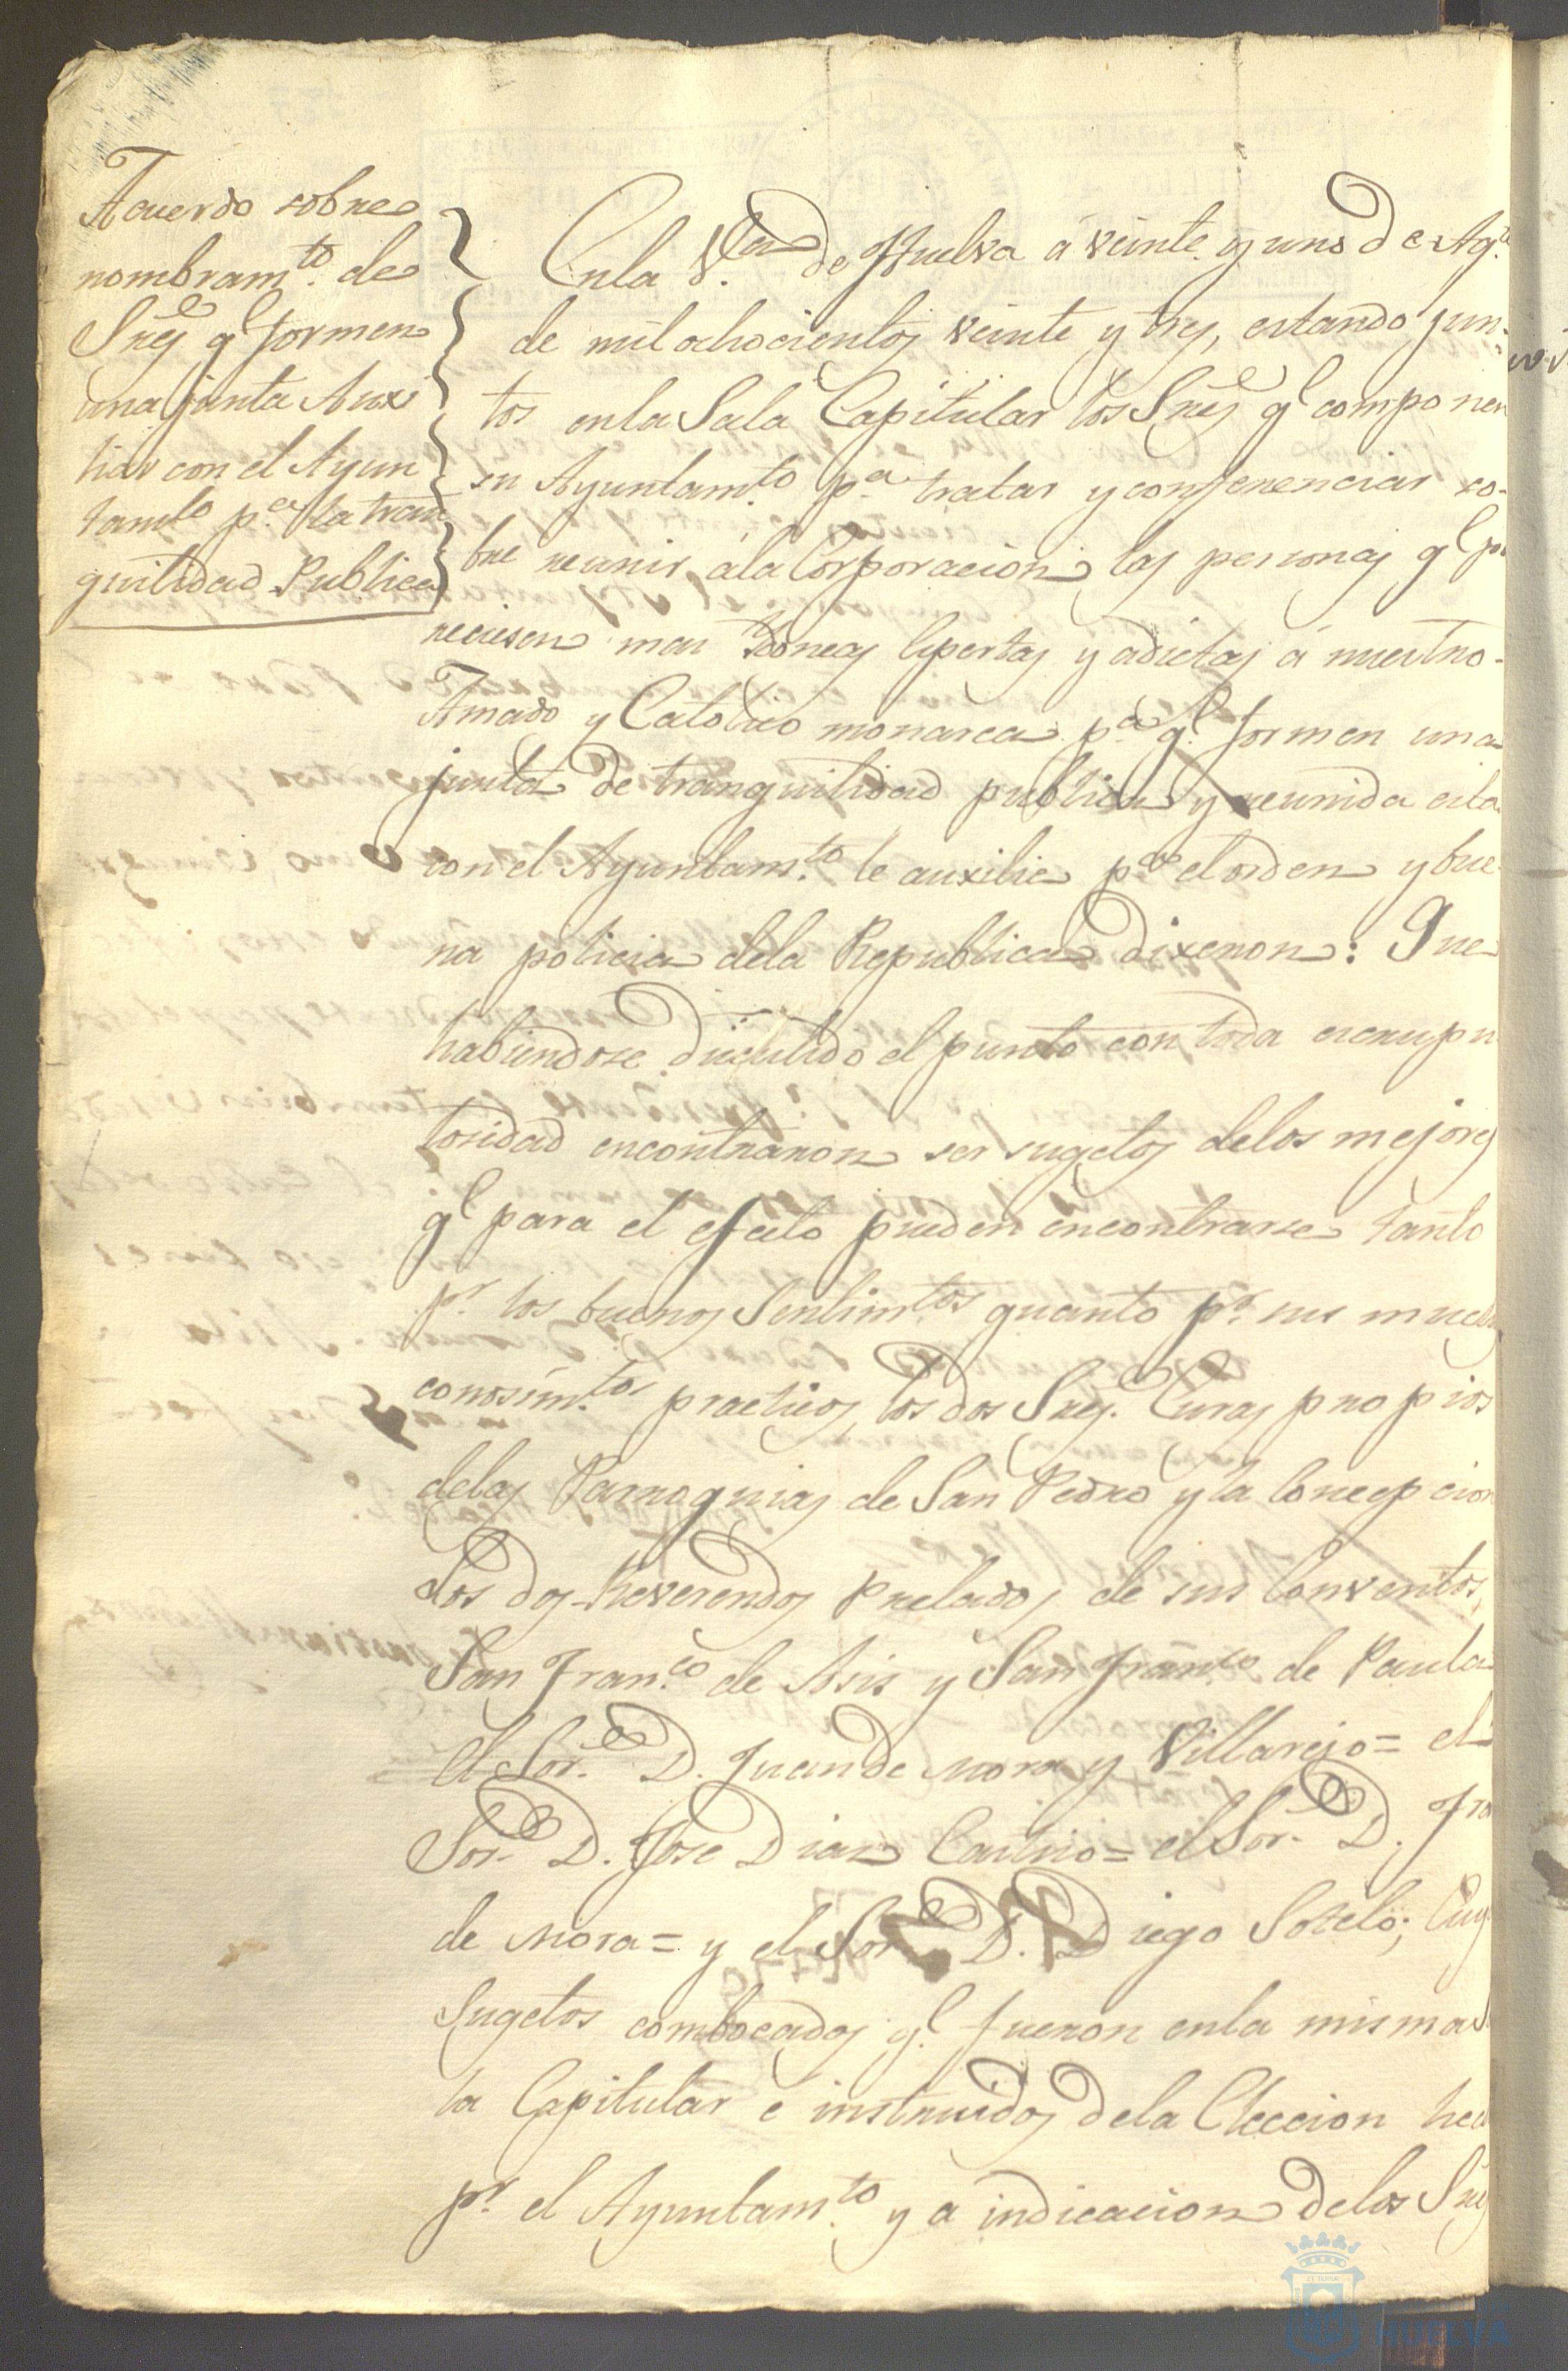 Acuerdo sobre
nombram.to de
Sres q.e formen
una junta Auxi
liar con el Ayun
tamto p.a la tran
quilidad Publica
En la V.a de Huelva á veinte y uno de Ag.to
de mil ochocientos veinte y tres, estando jun-
tos en la Sala Capitular los Sres q.e componen
su Ayuntam.to p.a tratar y conferenciar so-
bre reunir á la Corporacion las personas q.e pa
reciesen mas idoneas espertas y adictas á nuestro
Amado y Catolico monarca p.a q.e formen una
junta de tranquilidad publica y reunida esta
con el Ayuntam.to le auxilie p.a el orden y bue-
na policia dela Republica Dixeron: Que
habiendose discutido el punto con toda escrupu
losidad encontraron ser sugetos delos mejores
q.e para el efecto pueden encontrarse tanto
p.r los buenos Sentim.tos quanto p.r sus muchos
conosim.tos practicos, los dos Sres. Curas propios
delas Parroquias de San Pedro y la Concepcion
Los dos Reverendos Prelados de sus Conventos,
San Fran.co de Asis y San Fran.co de Paula
El Sor. D. Juan de Mora y Villarejo = el
Sor. D. Jose Diaz Castrio = el Sor. D. Fra
de Mora = y el Sor. D. Diego Sotelo; Cuy
Sugetos combocados q.e fueron enla misma S
la Capitular e instruidos dela Eleccion hec
p.r el Ayuntam.to y a indicacion delos Sres
HUELVA